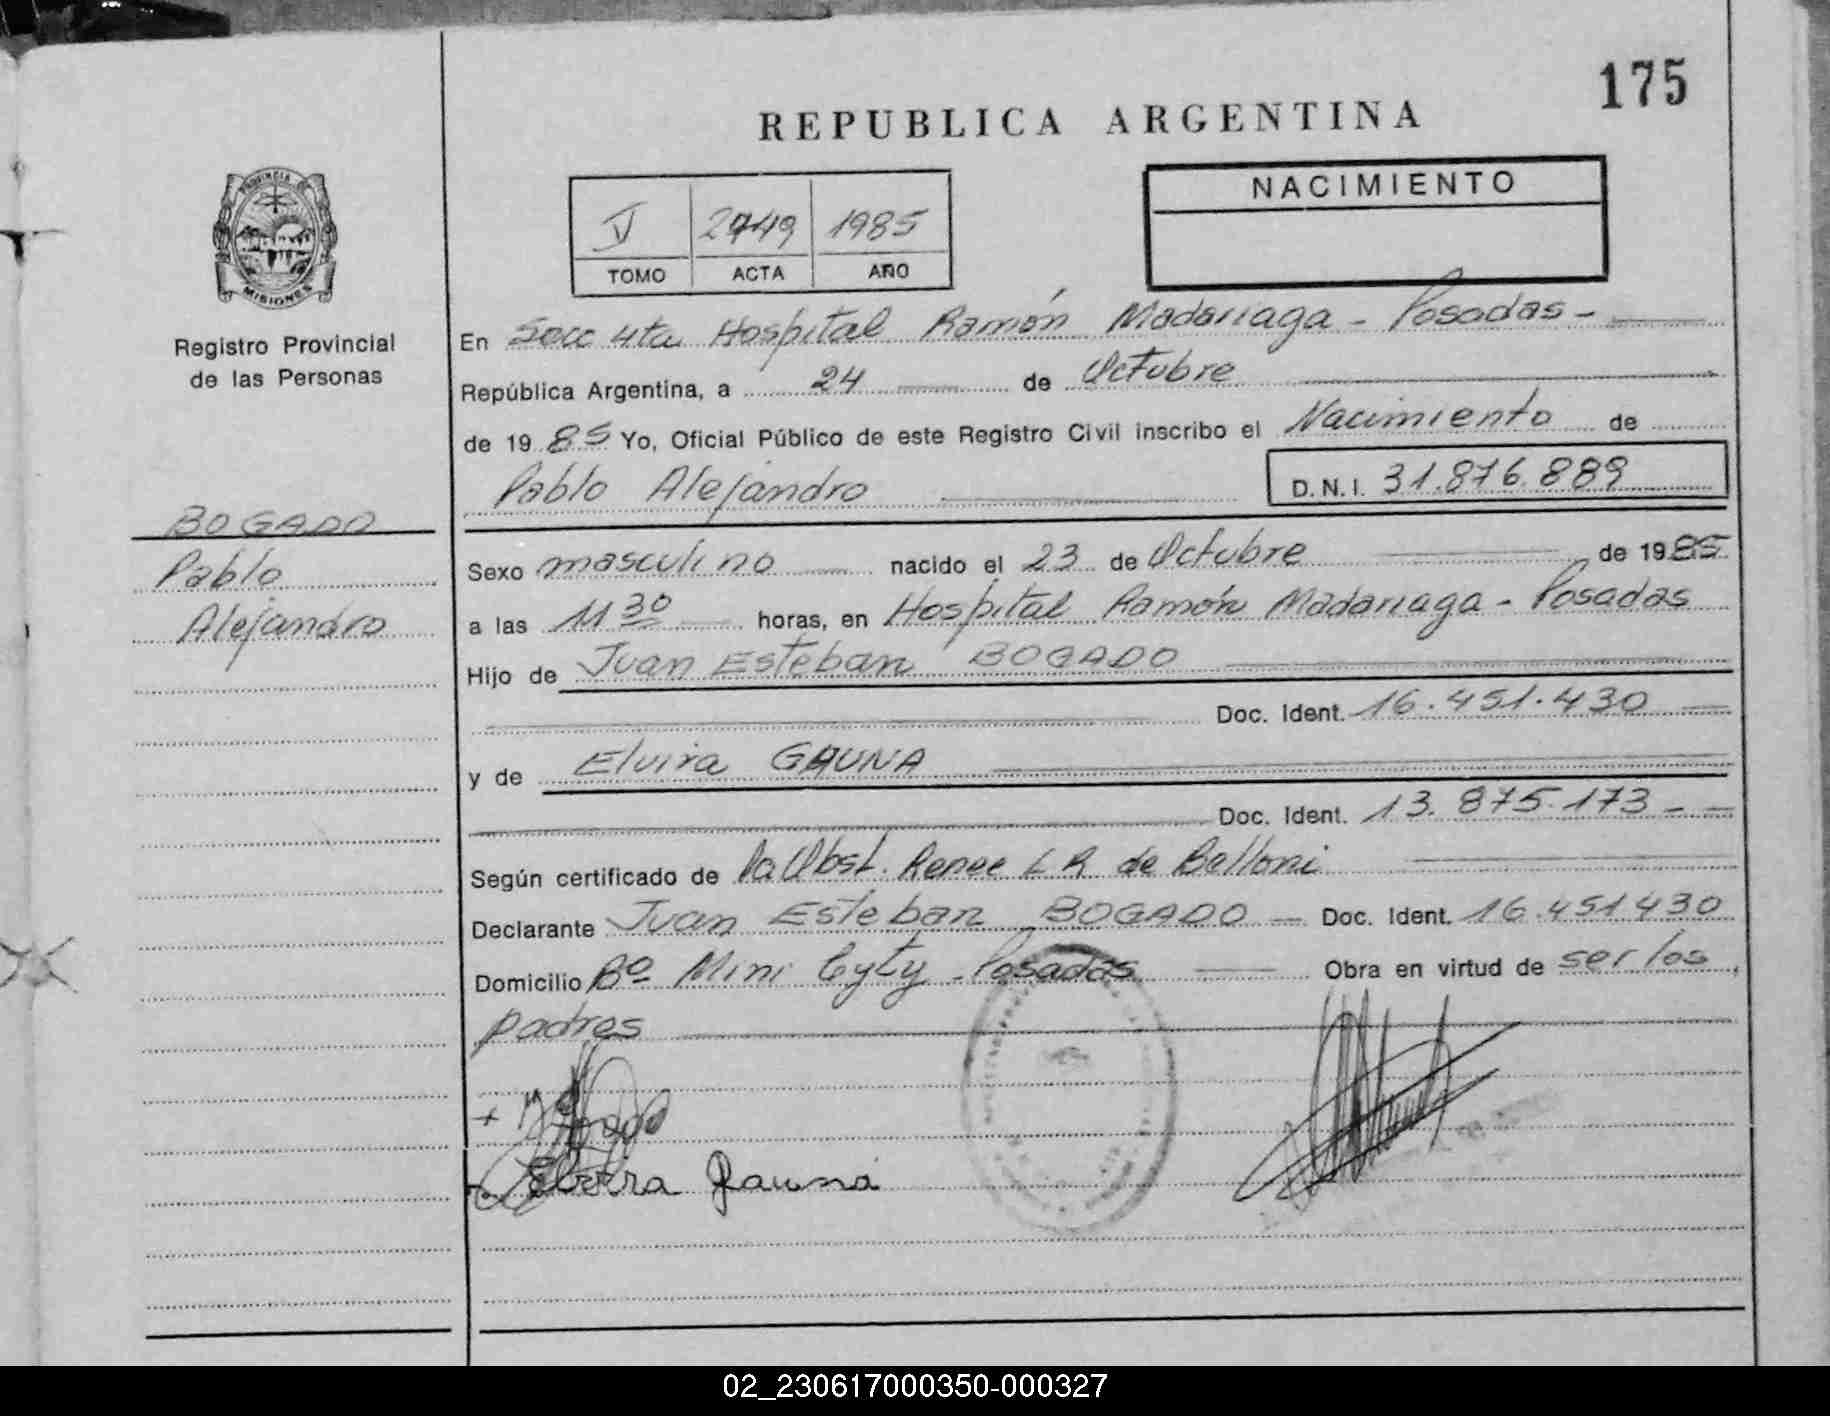 175
REPUBLICA ARGENTINA
PROVINCIA DE
MISIONES
Registro Provincial
de las Personas
V 2949 1985
TOMO ACTA AÑO
NACIMIENTO
En Secc 4ta Hospital Ramón Madariaga - Posadas -
República Argentina, a 24 de Octubre
de 1985 Yo, Oficial Público de este Registro Civil inscribo el Nacimiento de
Pablo Alejandro D.N.I. 31.876.889
BOGADO
Pablo
Alejandro
Sexo masculino nacido el 23 de Octubre de 1985
a las 11 30 horas, en Hospital Ramón Madariaga - Posadas
Hijo de Juan Esteban BOGADO
Doc. Ident. 16.451.430
y de Elvira GAUNA
Doc. Ident. 13.875.173 -
Según certificado de la Obst. Renee L R de Belloni
Declarante Juan Esteban BOGADO Doc. Ident. 16.451430
Domicilio Bº Mini Cyty - Posadas Obra en virtud de ser los
padres
Elvira Gauna
02_230617000350-000327